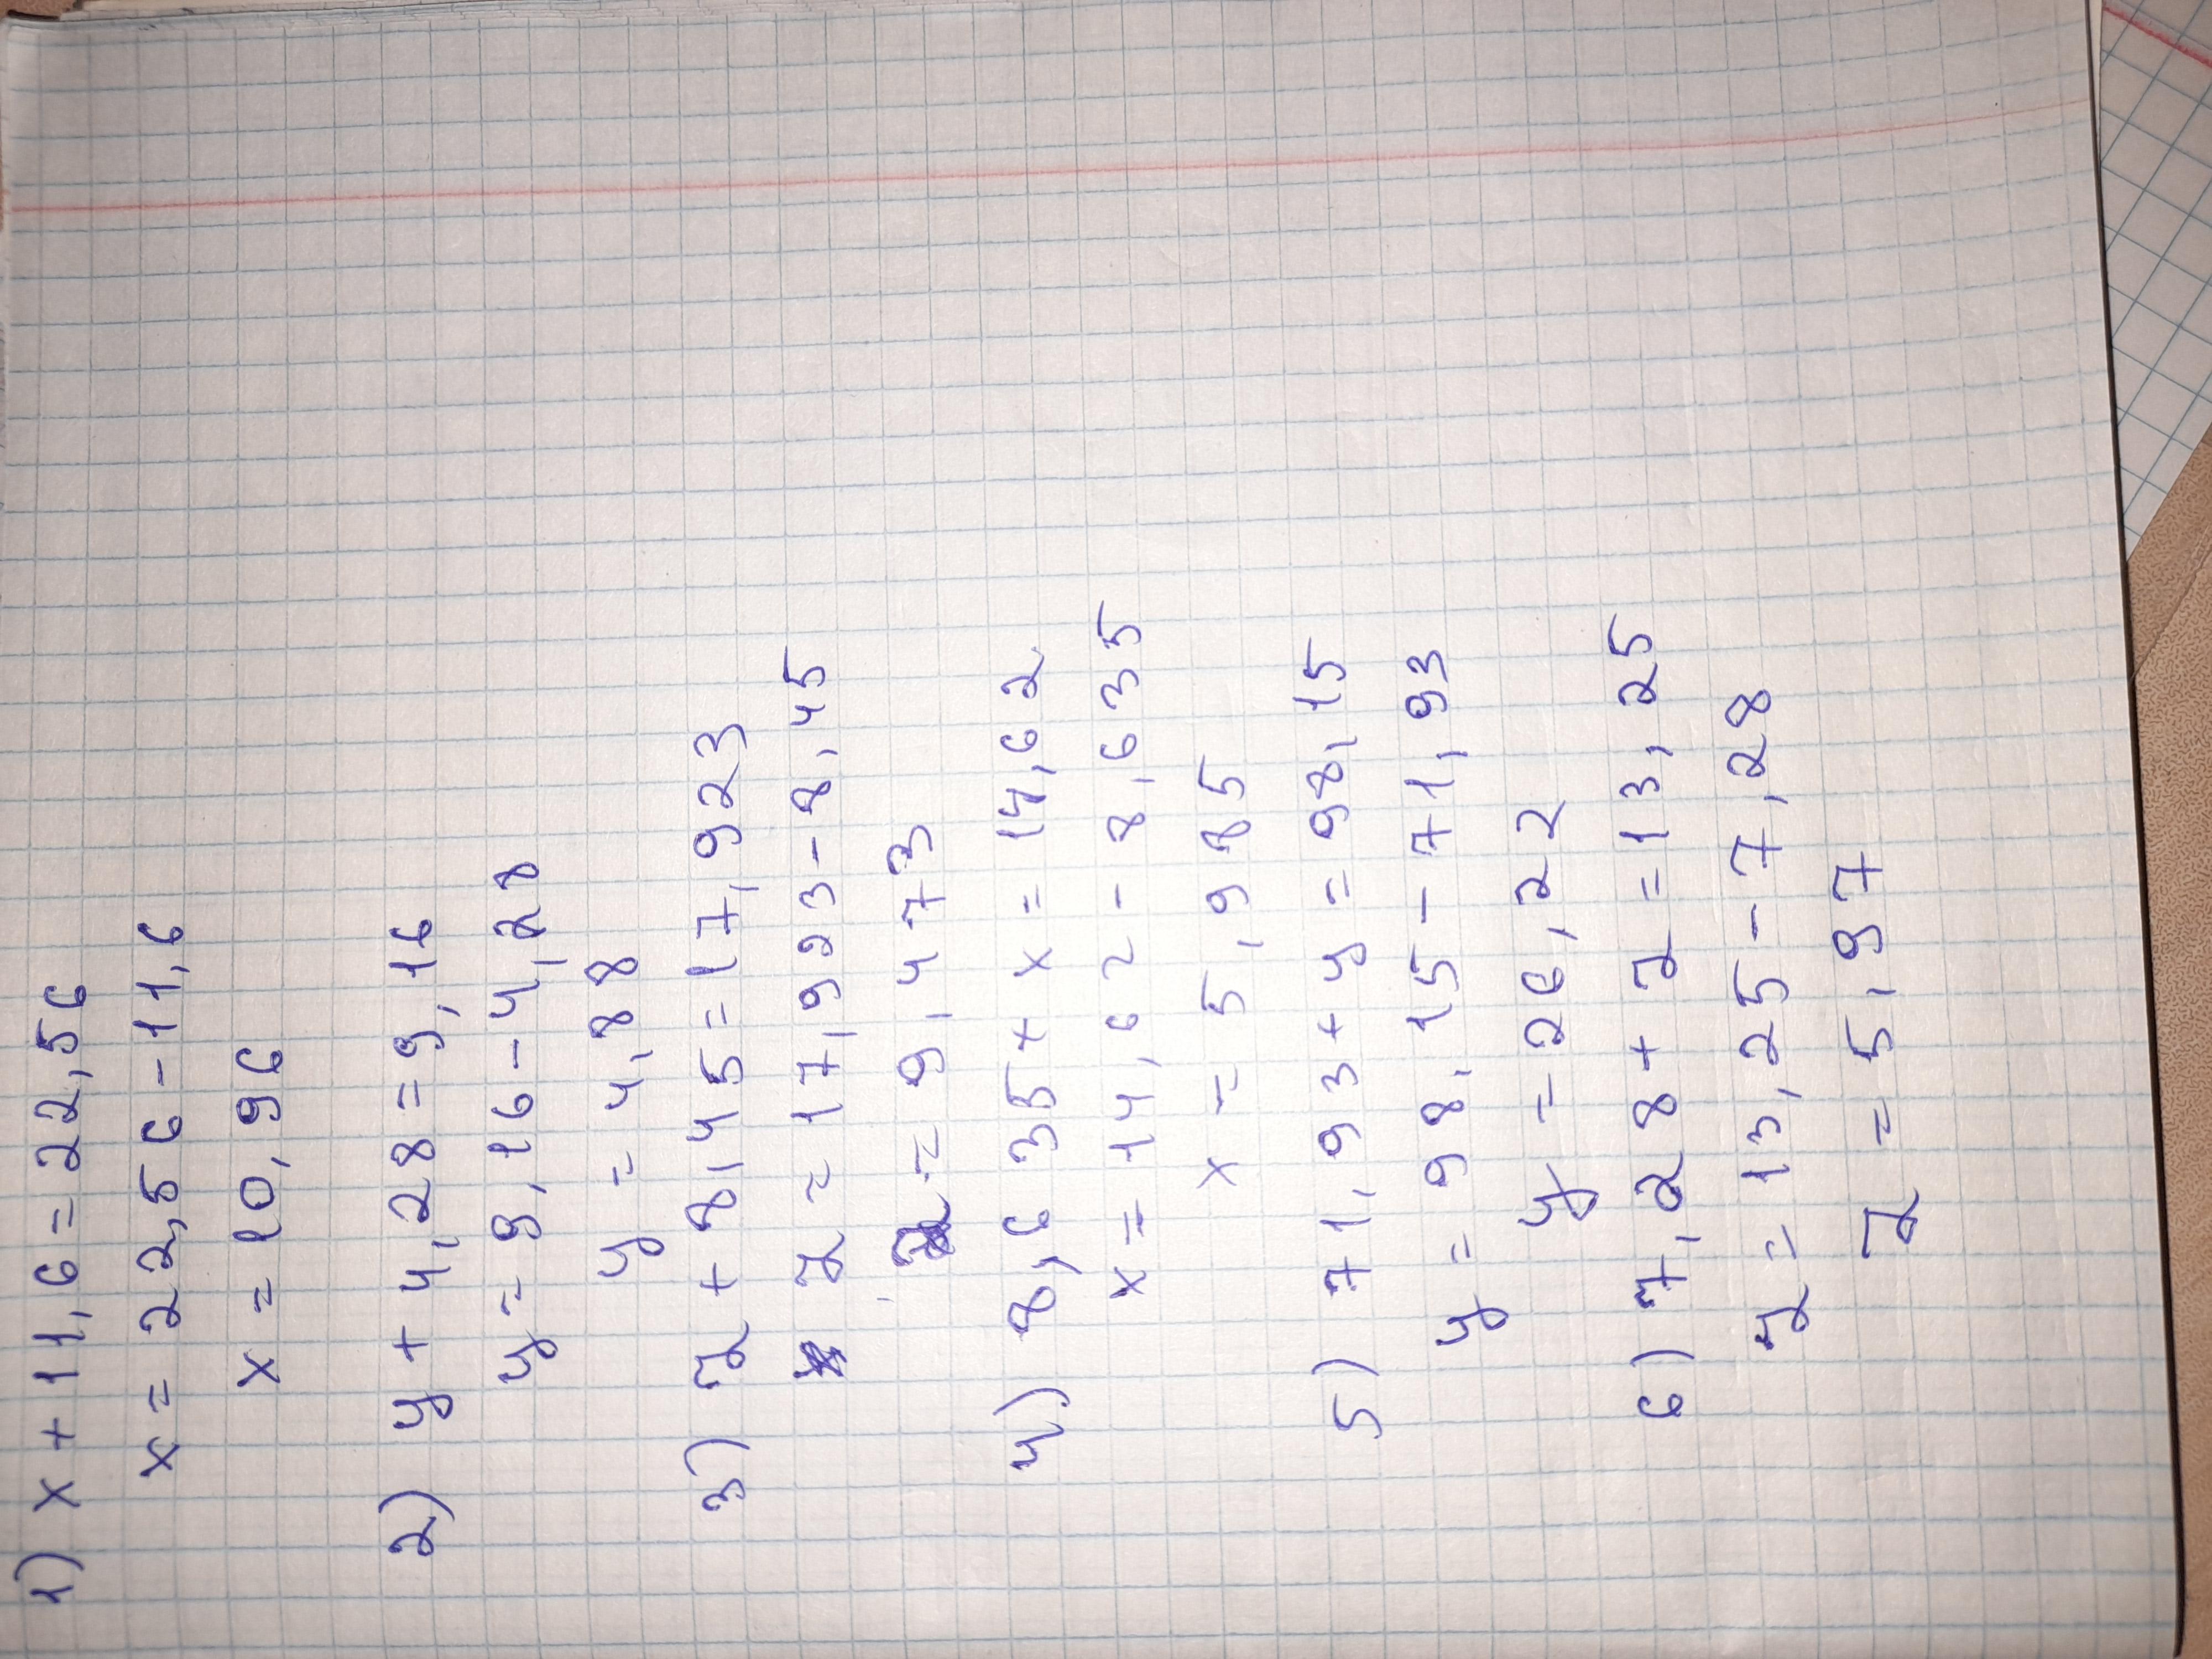 1) x + 11,6 = 22,56
x = 22,56 - 11,6
x = 10,96
2) y + 4,28 = 9,16
y = 9,16 - 4,28
y = 4,88
3) z + 8,45 = 17,923
z = 17,923 - 8,45
z = 9,473
4) 8,635 + x = 14,62
x = 14,62 - 8,635
x = 5,985
5) 71,93 + y = 98,15
y = 98,15 - 71,93
y = 26,22
6) 7,28 + z = 13,25
z = 13,25 - 7,28
z = 5,97